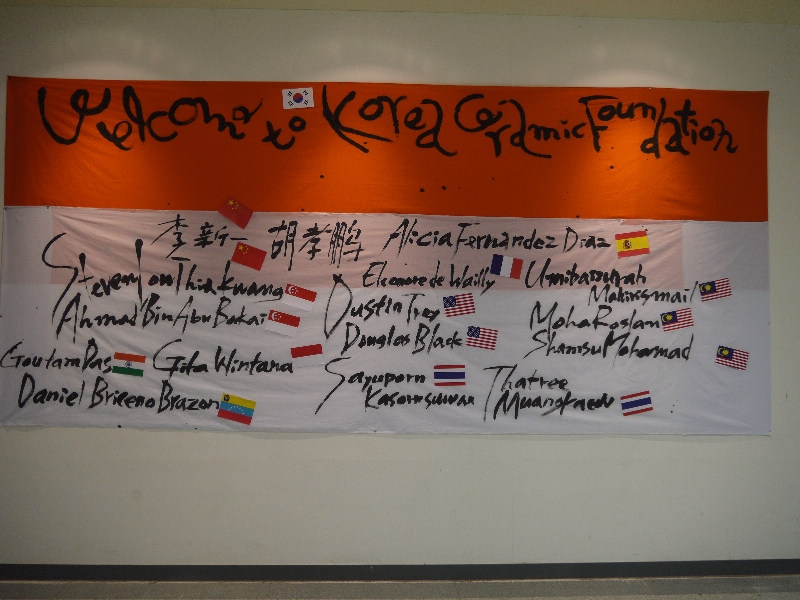 Welcome to Korea Ceramic Foundation
李新一 胡孝鹏 Alicia Fernandez Diaz
Steven Low Thia Kwang Eleonore de Wailly Umibaizurah
Mahir@Ismail
Ahmad Bin Abu Bakar Dustin Troy Moha Roslan
Douglas Black Shamsu Mohamad
Goutam Das Gita Wintana
Sayuporn Thatree
Kasornsuwan Muangkaew
Daniel Briceno Brazon